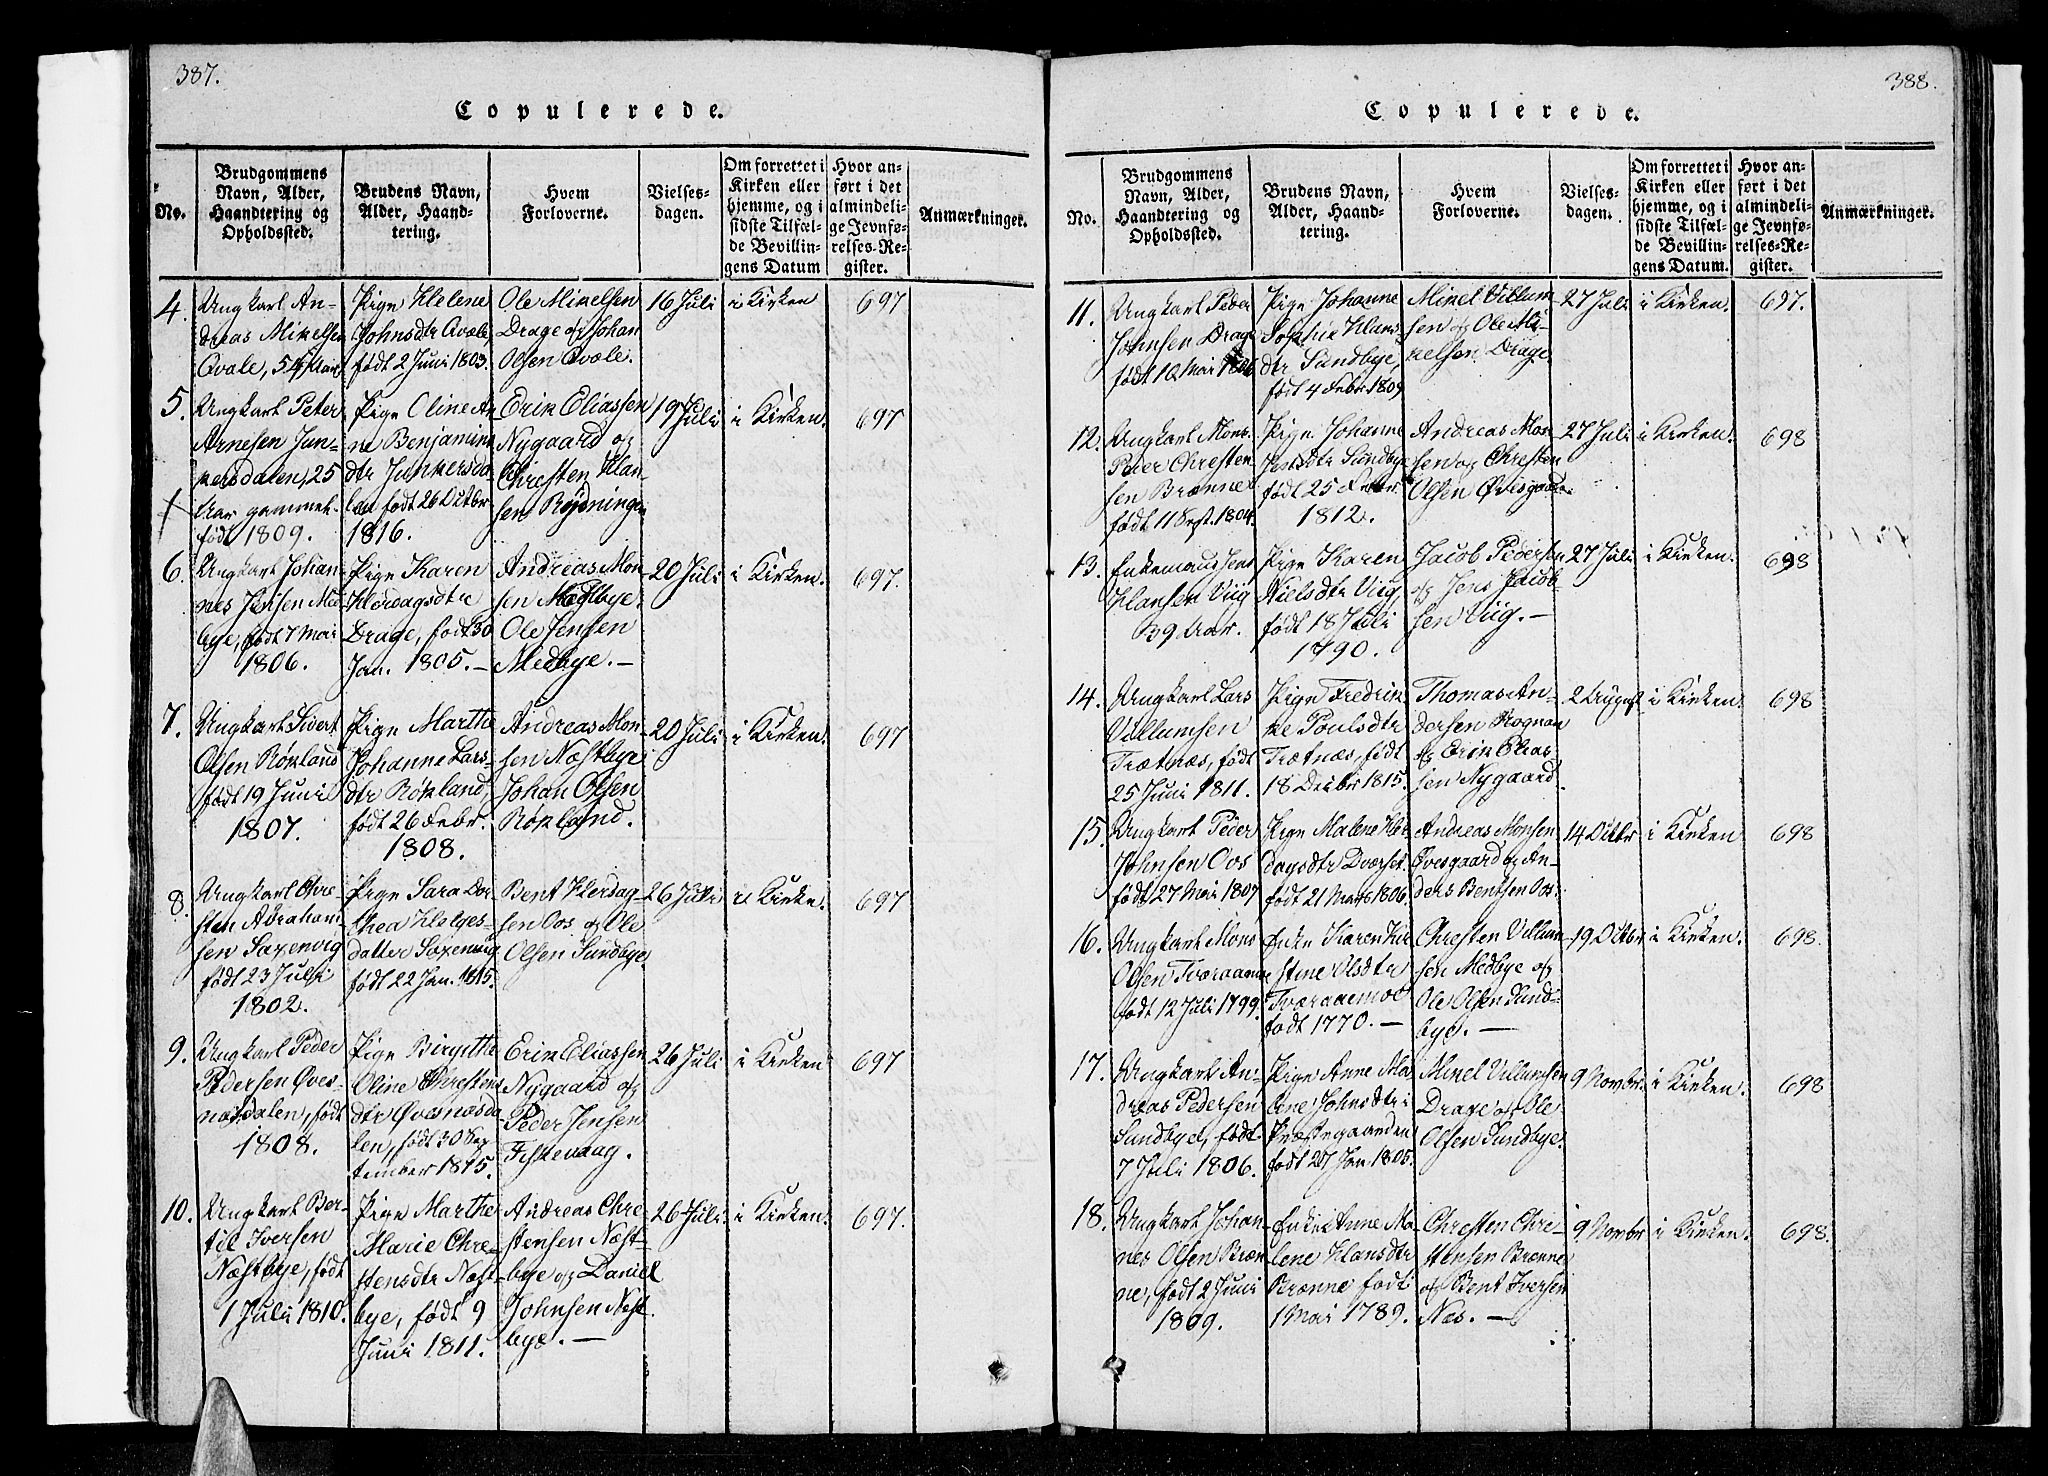 387.
Copulerede.
No.
Brudgommens
Navn, Alder,
Haandtering og
Opholdssted.
Brudens Navn,
Alder, Haand-
tering.
Hvem
Forloverne.
Vielses-
dagen.
Om forrettet i
Kirken eller
hjemme, og i
sidste Tilfæl-
de Bevillin-
gens Datum
Hvor an-
ført i det
almindeli-
ge Jevnfø-
relses-Re-
gister.
Anmærkninger.
4.
Ungkarl An-
dreas Mikelsen
Qvale, 54 Aar
Pige Helene
Johnsdtr Qvale,
født 2 Juni 1803.
Ole Mikelsen
Drage og Johan
Olsen Qvale.
16 Juli
i Kirken
697
5.
Ungkarl Peter
Arnesen Jun-
kersdalen, 25
Aar gammel
født 1809.
Pige Oline An-
ne Benjamins
dtr Junkersda-
len født 26 Octbr
1816.
Erik Eliassen
Nygaard og
Chresten Han-
sen Røgninge
19 Juli
i Kirken.
697
6.
Ungkarl Johan-
nes Jensen Med
bye, født 7 Mai
1806.
Pige Karen
Herdagsdtr
Drage, født 30
Jan. 1805. –
Andreas Mon-
sen Medbye.
Ole Jensen
Medbye. –
20 Juli
i Kirken.
697.
7.
Ungkarl Sivert
Olsen Røkland
født 19 Juni
1807.
Pige Marthe
Johanne Lars-
dtr Røkland,
født 26 Febr.
1808.
Andreas Mon-
sen Næstbye
Johan Olsen
Røkland.
20 Juli
i Kirken.
697
8.
Ungkarl Chre
sten Abraham-
sen Saxenvig
født 23 Juli
1802.
Pige Sara Dor-
thea Helges-
datter Saxenvig
født 22 Jan. 1815.
Bent Herdag-
sen Oos og Ole
Olsen Sundbye.
26 Juli
i Kirken.
697
9.
Ungkarl Peder
Pedersen Øves-
næsdalen, født
1808.
Pige Birgitthe
Oline Chrestens
dtr Øvesnæsda
len, født 30 Sep
tember 1815.
Erik Eliassen
Nygaard og
Peder Jensen
Fiskevaag.
26 Juli
i Kirken
697
10.
Ungkarl Ber-
til Iversen
Næstbye, født
1 Juli 1810.
Pige Marthe
Marie Chre-
stensdtr Næst-
bye, født 9
Juni 1811.
Andreas Chre
stensen Næst-
bye og Daniel
Johnsen Næst
bye. –
26 Juli
i Kirken.
697.
388.
Copulerede.
No.
Brudgommens
Navn, Alder,
Haandtering og
Opholdssted.
Brudens Navn,
Alder, Haand-
tering.
Hvem
Forloverne.
Vielses-
dagen.
Om forrettet i
Kirken eller
hjemme, og i
sidste Tilfæl-
de Bevillin-
gens Datum.
Hvor an-
ført i det
almindeli-
ge Jevnfø-
relses-Re-
gister.
Anmærkninger.
11.
Ungkarl Peder
Johnsen Drage
født 10 Mai 1806
Pige Johanne
Sophie Hans
dtr Sundbye,
født 4 Febr 1809
Mikel Villum
sen og Ole Mi-
kelsen Drage
27 Juli
i Kirken.
697.
12.
Ungkarl Mons
Peter Chresten
sen Brænne
født 11 Sept. 1804.
Pige Johanne
Jensdtr Sundbye
født 25 Febr.
1812.
Andreas Mon
sen og Chresten
Olsen Øvesgaard.
27 Juli
i Kirken.
698
13.
Enkemand Jens
Hansen Viig
39 Aar.
Pige Karen
Nielsdtr Viig,
født 18 Juli
1790.
Jacob Pedersen
og Jens Jacob-
sen Viig. –
27 Juli
i Kirken.
698
14.
Ungkarl Lars
Villumsen
Trætnæs, født
25 Juni 1811.
Pige Fredrik-
ke Poulsdtr
Trætnæs, født
18 Decbr 1815.
Thomas An-
dersen Rognan
og Erik Elias-
sen Nygaard
2 August
i Kirken.
698
15.
Ungkarl Peder
Johnsen Oos
født 27 Mai 1807
Pige Malene Her
dagsdtr Dverset
født 21 Marts 1806.
Andreas Monsen
Øvesgaard og An-
ders Bentsen Oos.
14 Octbr
i Kirken
698
16.
Ungkarl Mons
Olsen Tveraamoe
født 12 Juli 1799.
Enke Karen Kir
stine Olsdtr
Tveraaemoe
født 1770. –
Chresten Villum-
sen Medbye og
Ole Olsen Sund-
bye. –
19 Octbr
i Kirken.
698.
17.
Ungkarl An-
dreas Pedersen
Sundbye, født
7 Juli 1806.
Pige Anne Ma
lene Johnsdtr i
Præstegaarden
født 27 Jan 1805.
Mikel Villumsen
Drage og Ole
Olsen Sundbye.
9 Novbr.
i Kirken.
698
18.
Ungkarl Johan-
nes Olsen Bræn
ne, født 2 Juni
1809.
Enke Anne Ma
lene Hansdtr
Brænne født
1 Mai 1789.
Chresten Chre-
stensen Brænne
og Bent Iversen
Næs. –
9 Novbr
i Kirken.
698.